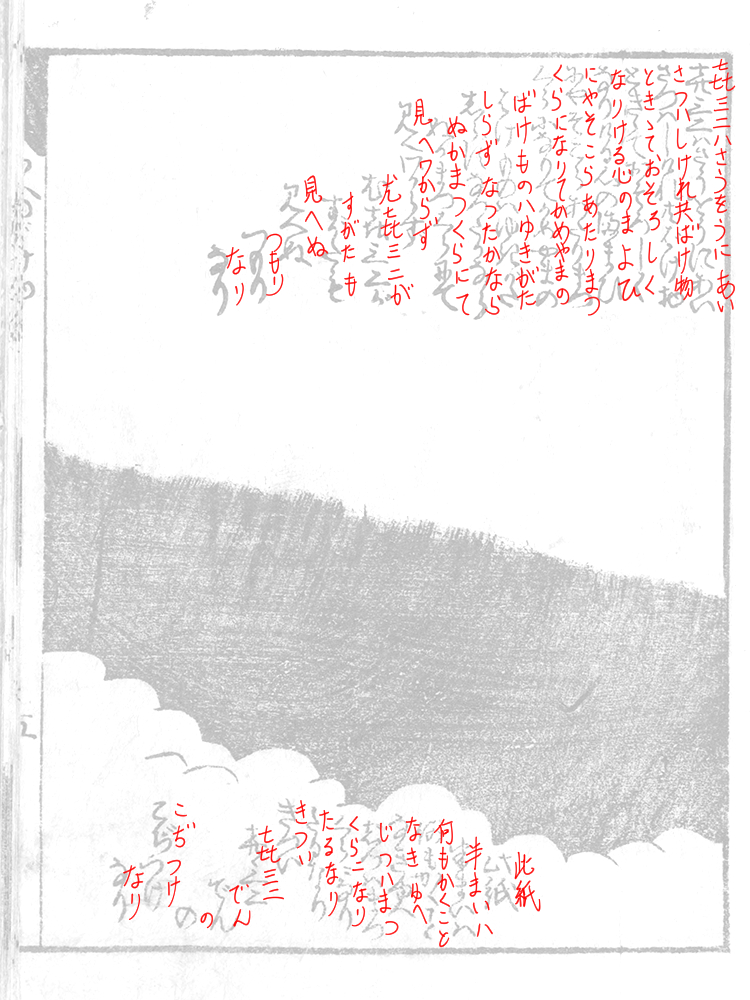 㐂三二ハさうをうに あい
さつハしけれ共ばけ物
ときゝておそろしく
なりける心のま よひ
にやそこらあたりまつ
くらになりてかめやまの
ばけものハゆきがた
しらず なつたかなら
ぬかまつくらにて
見へワからず
尤㐂三二が
すがたも
見へぬ
つもり
なり
此紙
半まいハ
何もかくこと
なきゆへ
じつハまつ
くらニなり
たるなり
きつい
㐂三二
でん
の
こぢつけ
なり